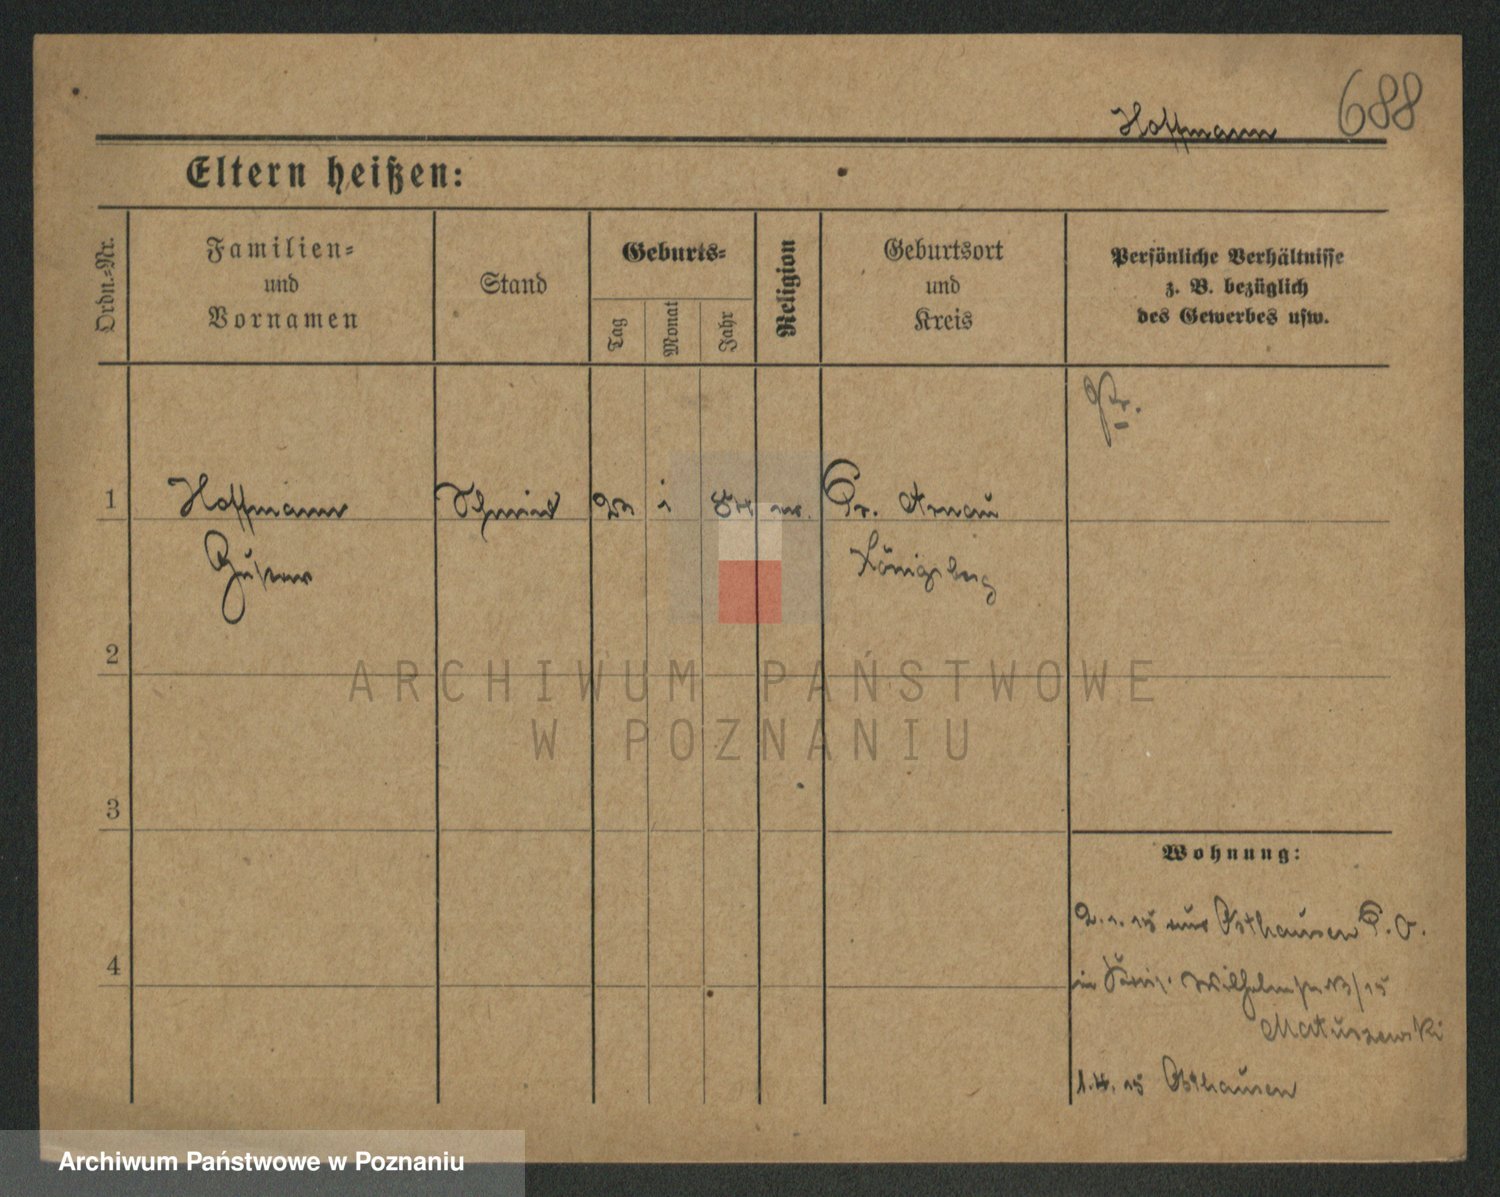 Hoffmann 688
Eltern heißen:
Ordn.-Nr.
Familien-
und
Vornamen
Stand
Geburts-
Tag
Monat
Jahr
Religion
Geburtsort
und
Kreis
Persönliche Verhältnisse
z. B. bezüglich
des Gewerbes usw.
Pr.
1 Hoffmann Schmied Gr. Arnau
Gustav Königsberg
2
ARCHIWUM PAŃSTWOWE
W POZNANIU
3
Wohnung:
2.1.15 aus Osthausen P.O.
4
in Wilhelmstr 13/15
Matuszewski
1.4.15 Osthausen
Archiwum Państwowe w Poznaniu